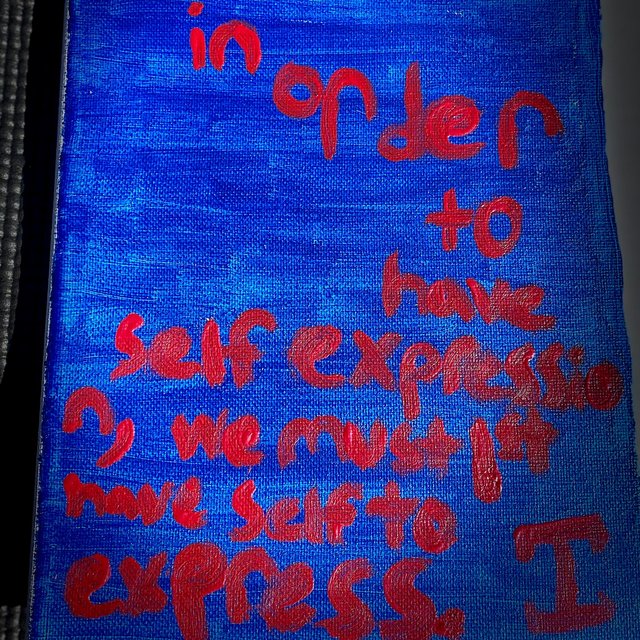 in
order
to
have
self expressio
n, we must 1st
have self to
express. I